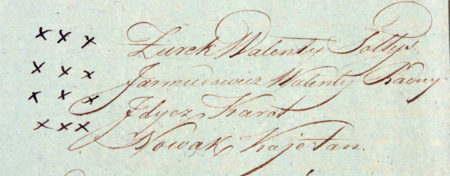 xxx Żurek Walenty Sołtys.
xxx Jarmudowicz Walenty Radny
xxx Idycz Karol
xxx Nowak Kajetan.